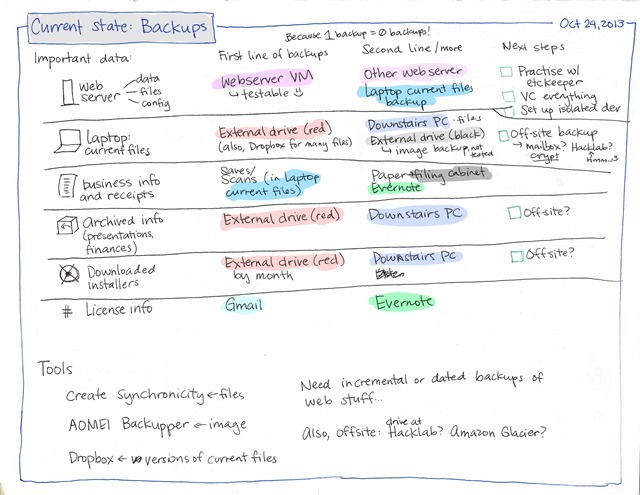 Current state: Backups
Oct 29, 2013
Because 1 backup = 0 backups!
Important data:
First line of backups
Second line/more
Next steps
web server
data
files
config
Webserver VM
↳ testable ☺
Other webserver
Laptop current files
backup
Practise w/
etckeeper
VC everything
Set up isolated dev
Laptop:
current files
External drive (red)
(also, Dropbox for many files)
Downstairs PC - files
External drive (black)
↳ image backup, not tested
Off-site backup
→ mailbox? Hacklab?
crypt
Hmm...
business info
and receipts
Saves/
Scans (in laptop
current files)
Paper → filing cabinet
Evernote
Archived info
(presentations,
finances)
External drive (red)
Downstairs PC
Off-site?
Downloaded
installers
External drive (red)
by month
Downstairs PC
Offsite?
# License info
Gmail
Evernote
Tools
Create Synchronicity ← files
AOMEI Backupper ← image
Dropbox ← versions of current files
Need incremental or dated backups of
web stuff...
Also, offsite: drive at Hacklab? Amazon Glacier?